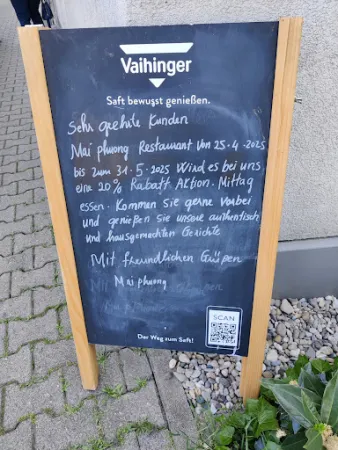 Vaihinger
Saft bewusst genießen.
Sehr geehrte Kunden
Mai phuong Restaurant von 25.4.2025
bis zum 31.5.2025 Wird es bei uns
eine 20% Rabatt Aktion. Mittag
essen. Kommen Sie gerne vorbei
und genießen Sie unsere authentisch
und hausgemachten Gerichte.
Mit freundlichen Grüßen
Mai phuong
SCAN
Der Weg zum Saft!